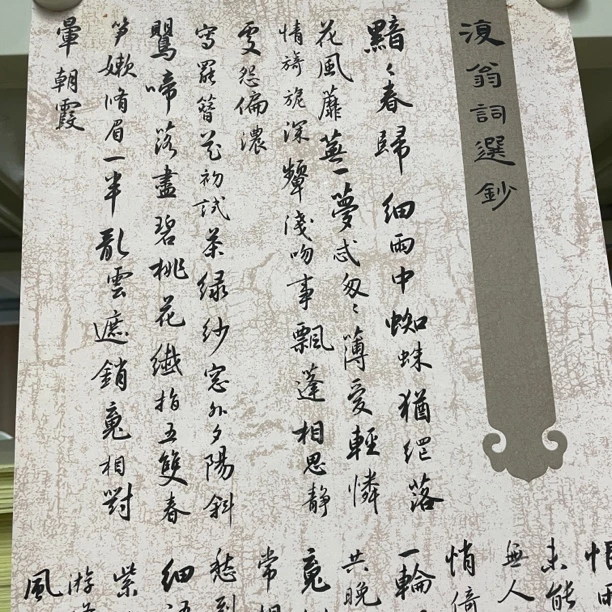 復翁詞選鈔
黯〻春歸細雨中蜘蛛猶落
花風蘼蕪一夢忒匆〻薄愛輕憐
情旖旎深顰淺吻事飄蓬相思靜
怨偏濃
寫罷簪花初試茶綠紗窗外夕陽斜
鶯啼落盡碧桃花纖指五雙春
笋嫩脩眉一半亂雲遮銷魂相對
暈朝霞
恨
未能
無人
悄倚
一輪
共晚
魂
常
愁到
細
紫
游
風